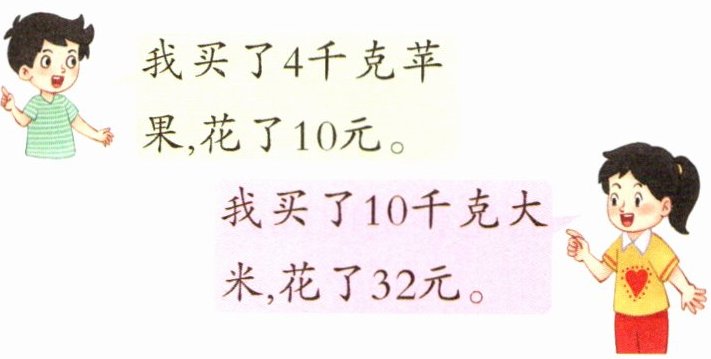 我买了4千克苹
果,花了10元。
我买了10千克大
米,花了32元。